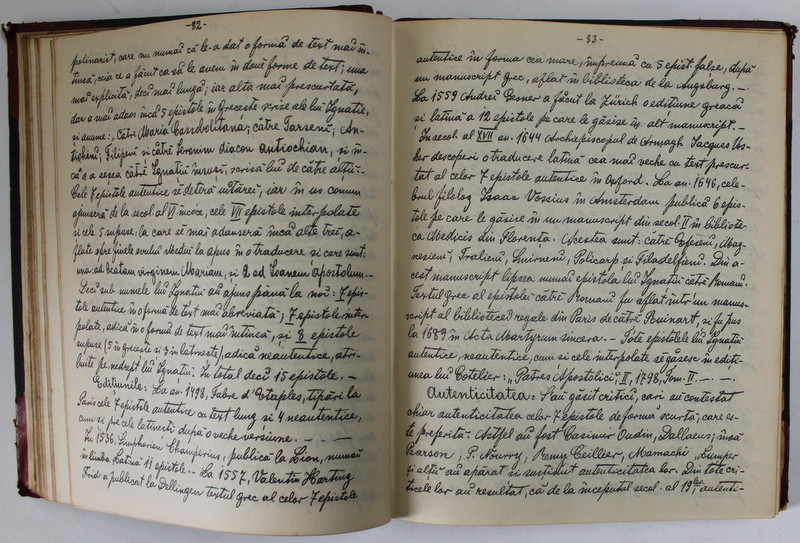 -82-
polinarist, care nu numai că le-a dat o formă de text mai în-
tinsă, ceia ce a făcut ca să le avem în două forme de text; una
mai explicită, deci mai lungă; iar alta mai prescurtată,
dar a mai adaos încă 5 epistole în grecește scrise ale lui Ignatie,
și anume: "către Maria Cassobolitana; către Tarseni; An-
tioheni, Filipeni și către Eronim diacon Antiochian, și în-
că și a șesea către Ignatii însuși, scrisă lui de către alții.-
Cele 7 epistole autentice se deteră uitărei, iar în us comun
apuseră de la secol. al VI încoe, cele VII epistole interpolate
și cele 5 supuse, la care se mai adauseră încă alte trei, a-
flate spre finele evului Mediu la apus în o traducere și care sunt:
una: ad Beatam virginem Mariam, și 2 ad Ioanem apostolum.-
Deci sub numele lui Ignatiu au ajuns până la noi: 7 epis-
tole autentice în o formă de text mai abreviată; 7 epistole inter-
polate, adică în o formă de text mai întinsă, și 8 epistole
supuse (5 în grecește și 3 în latinește), adică neautentice, atri-
buite pe nedrept lui Ignatiu. În total deci 15 epistole.-
Edițiunile: La an. 1498, Fabre d'Etaples, tipări la
Paris cele 7 epistole autentice cu text lung și 4 neautentice,
cum și pe cele latinești, după o veche versiune. - - -
În 1536, Simphorian Champerius, publică la Lion, numai
în limba Latină 11 epistole.- La 1557, Valentin Hartung
Frid a publicat la Dillingen textul grec al celor 7 epistole
-83-
autentice în forma cea mare, împreună cu 5 epist. false, după
un manuscript grec, aflat în biblioteca de la Augsburg.-
La 1559 Andrei Gesner a făcut la Zürich o edițiune greacă
și latină a 12 epistole pe care le găsise în alt manuscript.-
În secol. al XVII an. 1644 Archiepiscopul de Armagh Jacques Us-
ser descoperi o traducere latină cea mai veche cu text prescur-
tat al celor 7 epistole autentice în Oxford. La an. 1646, cele-
brul filolog Isaac Vossius în Amsterdam publică 6 epis-
tole pe care le găsise în un manuscript din secol. II în bibliote-
ca Medicis din Florența. Acestea sunt: către Efeseni, Mag-
nesieni, Tralieni, Smirneni, Policarp și Filadelfieni. Din a-
cest manuscript lipsea numai epistola lui Ignatiu către Romani.
Textul grec al epistolei către Romani fu aflat într'un manus-
cript al bibliotecei regale din Paris de către Ruinart, și fu pus
la 1689 în Acta Martyrum sincera.- Tóte epistolele lui Ignatiu
autentice, neautentice, cum și cele interpolate se găsesc în editi-
unea lui Cotelier: "Patres Apostolici", II, 1798, Tom. II. - -
Autenticitatea: S'au găsit critici, cari au contestat
chiar autenticitatea celor 7 epistole de forma scurtă, care es-
te preferită. Astfel au fost Casimir Oudin, Dallaeus; însă
Pearson, P. Nourry, Remy Ceillier, Mamachi, Lumper
și alții au apărat și susținut autenticitatea lor. Din tote cri-
ticele lor au resultat, că de la începutul secol. al 19lea, autenti-